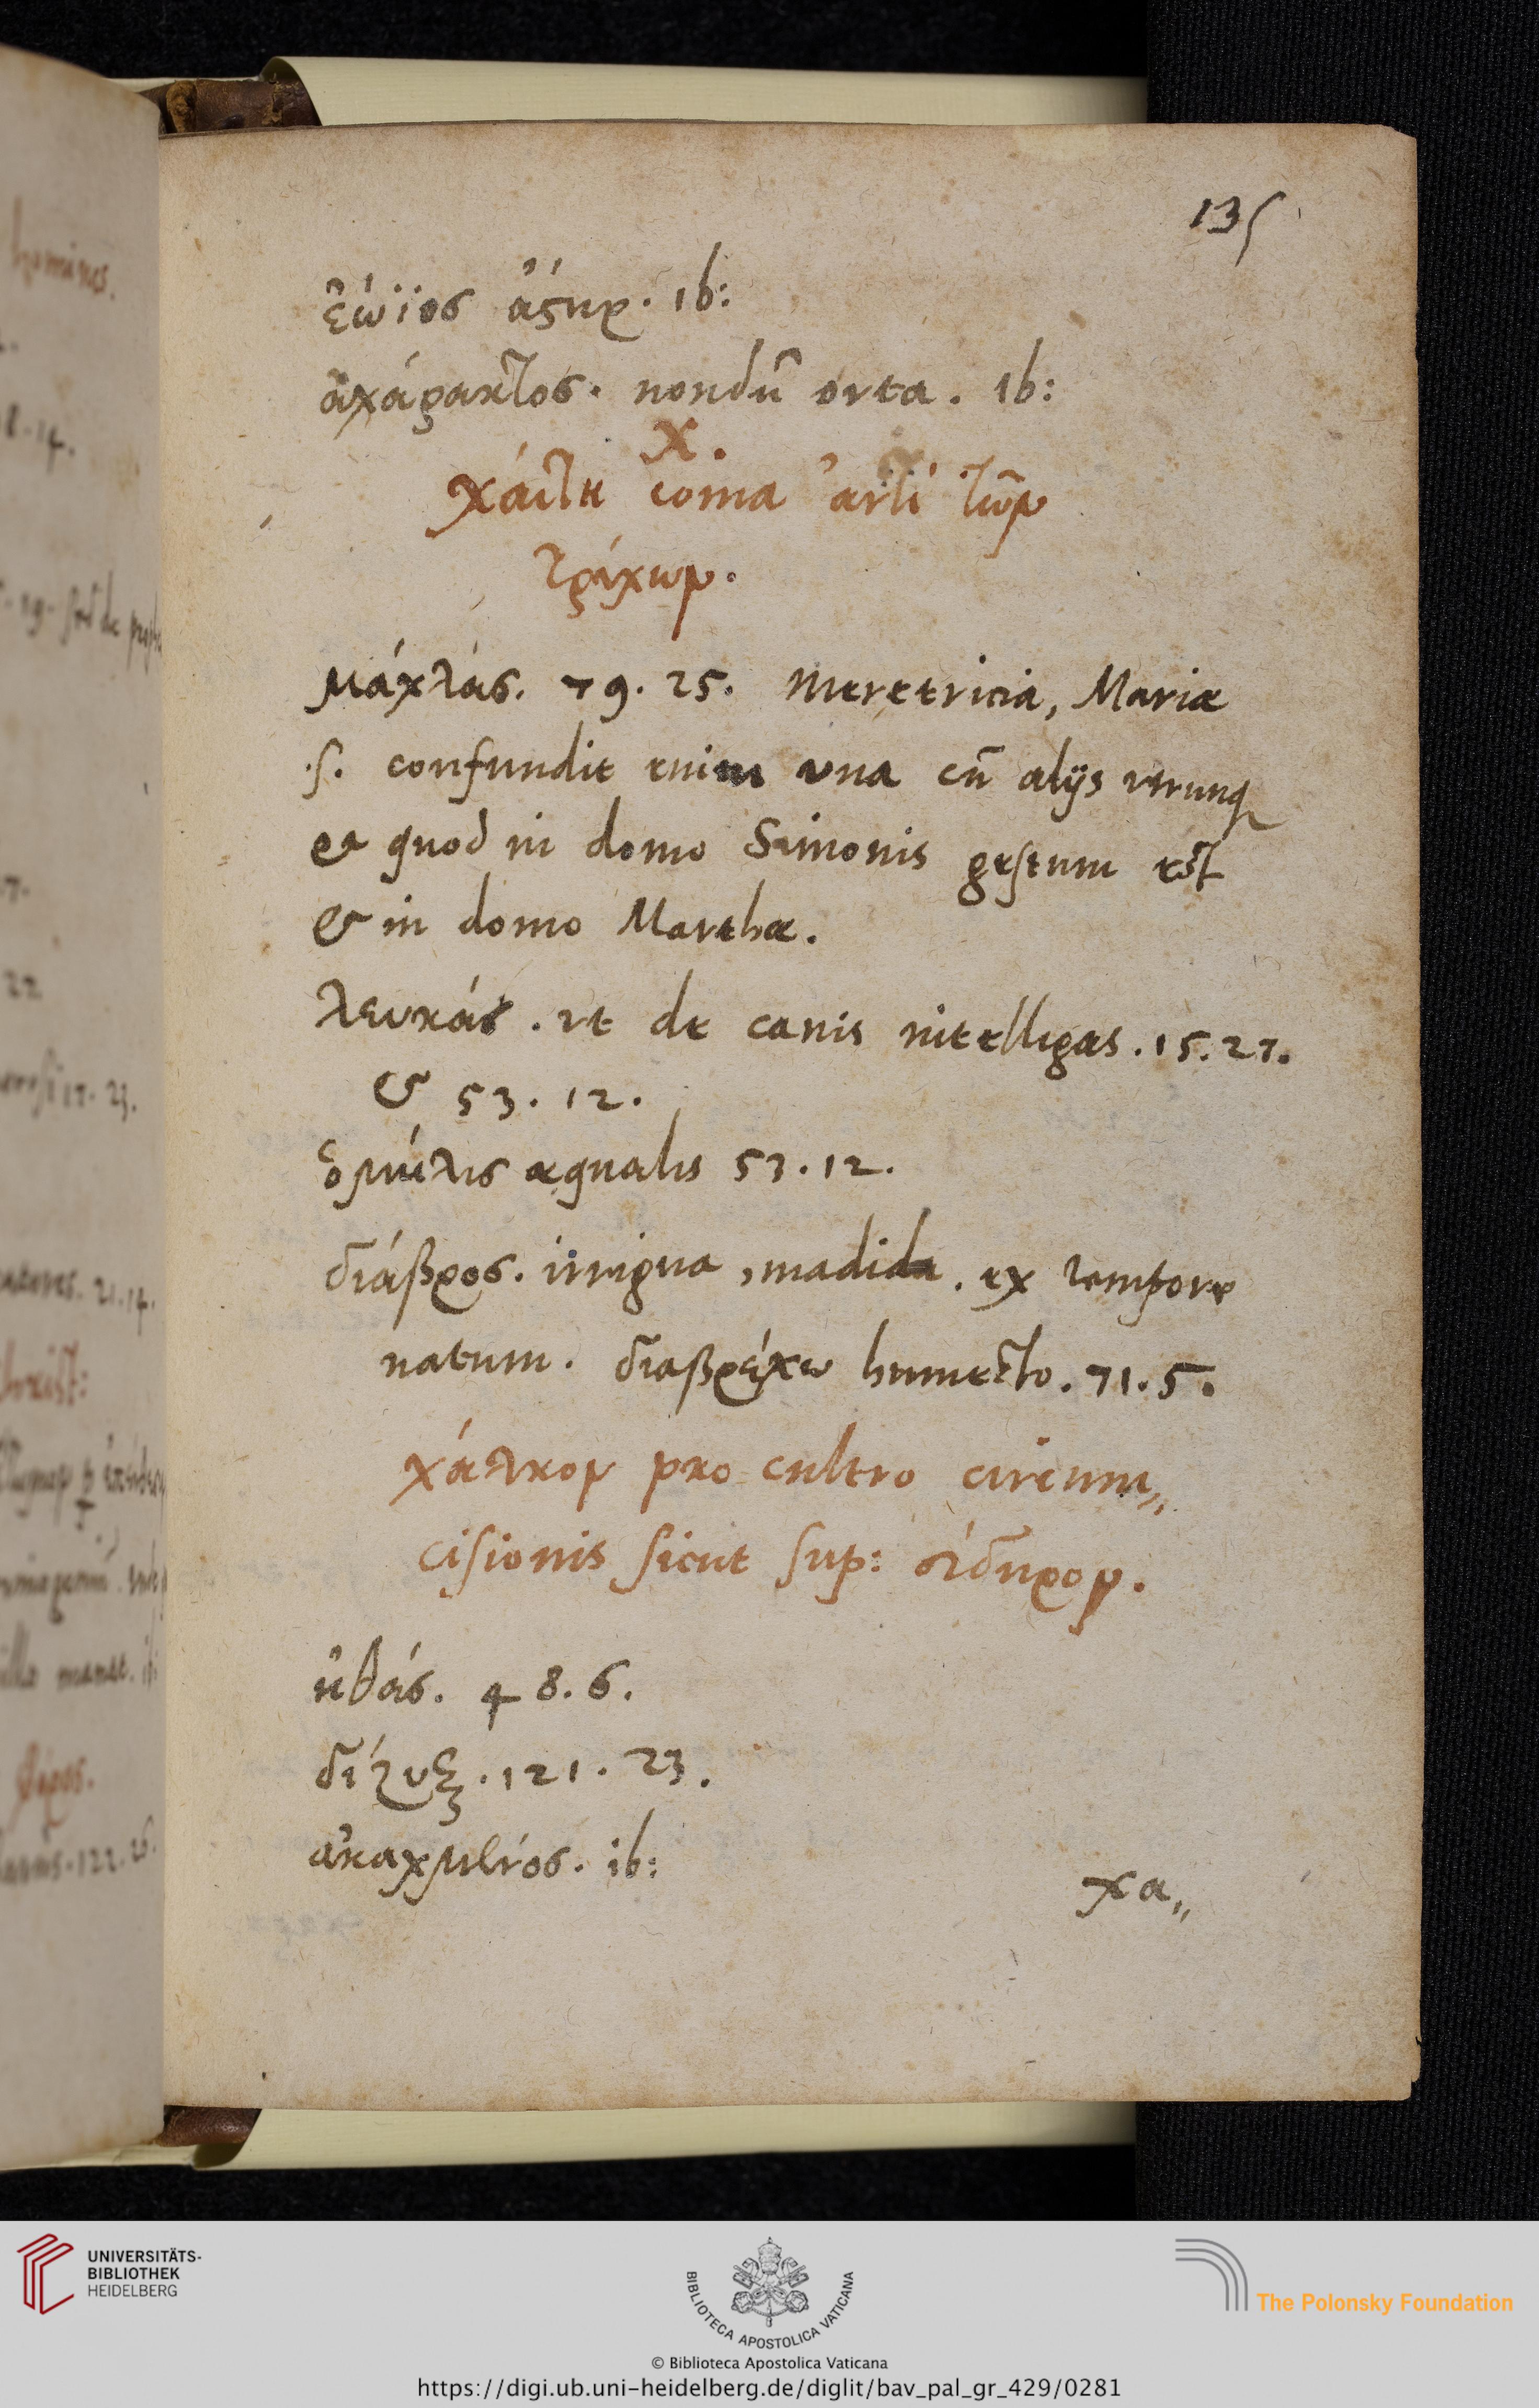 135
ἑώϊος ἀςήρ. ib:
ἀχάρακτος. nondū orta. ib:
χ.
χάιτη coma ἀντὶ τῶν
τρίχων.
μάχλάς. 79. 25. meretricia, Mariæ
.s. confundit enim una cū alijs utrunq
et quod in domo Simonis gestum est
& in domo Marthæ.
λευκάς. ut de canis intelligas. 15. 27.
& 53. 12.
ὁμῆλις æqualis 53. 12.
διάβρος. irrigua, madida. ex tempore
natum. διαβρέχω humecto. 71. 5.
χάλκον pro cultro circum„
cisionis sicut sup: σίδηρον.
ἠθάς. 48. 6.
δίζυξ. 121. 23.
ἀκαχμένος. ib:
χα„
homines.
8. 14.
22
17. 23.
21. 14.
Christ:
manet.
122. 26.
UNIVERSITÄTS-
BIBLIOTHEK
HEIDELBERG
BIBLIOTECA APOSTOLICA VATICANA
© Biblioteca Apostolica Vaticana
The Polonsky Foundation
https://digi.ub.uni-heidelberg.de/diglit/bav_pal_gr_429/0281